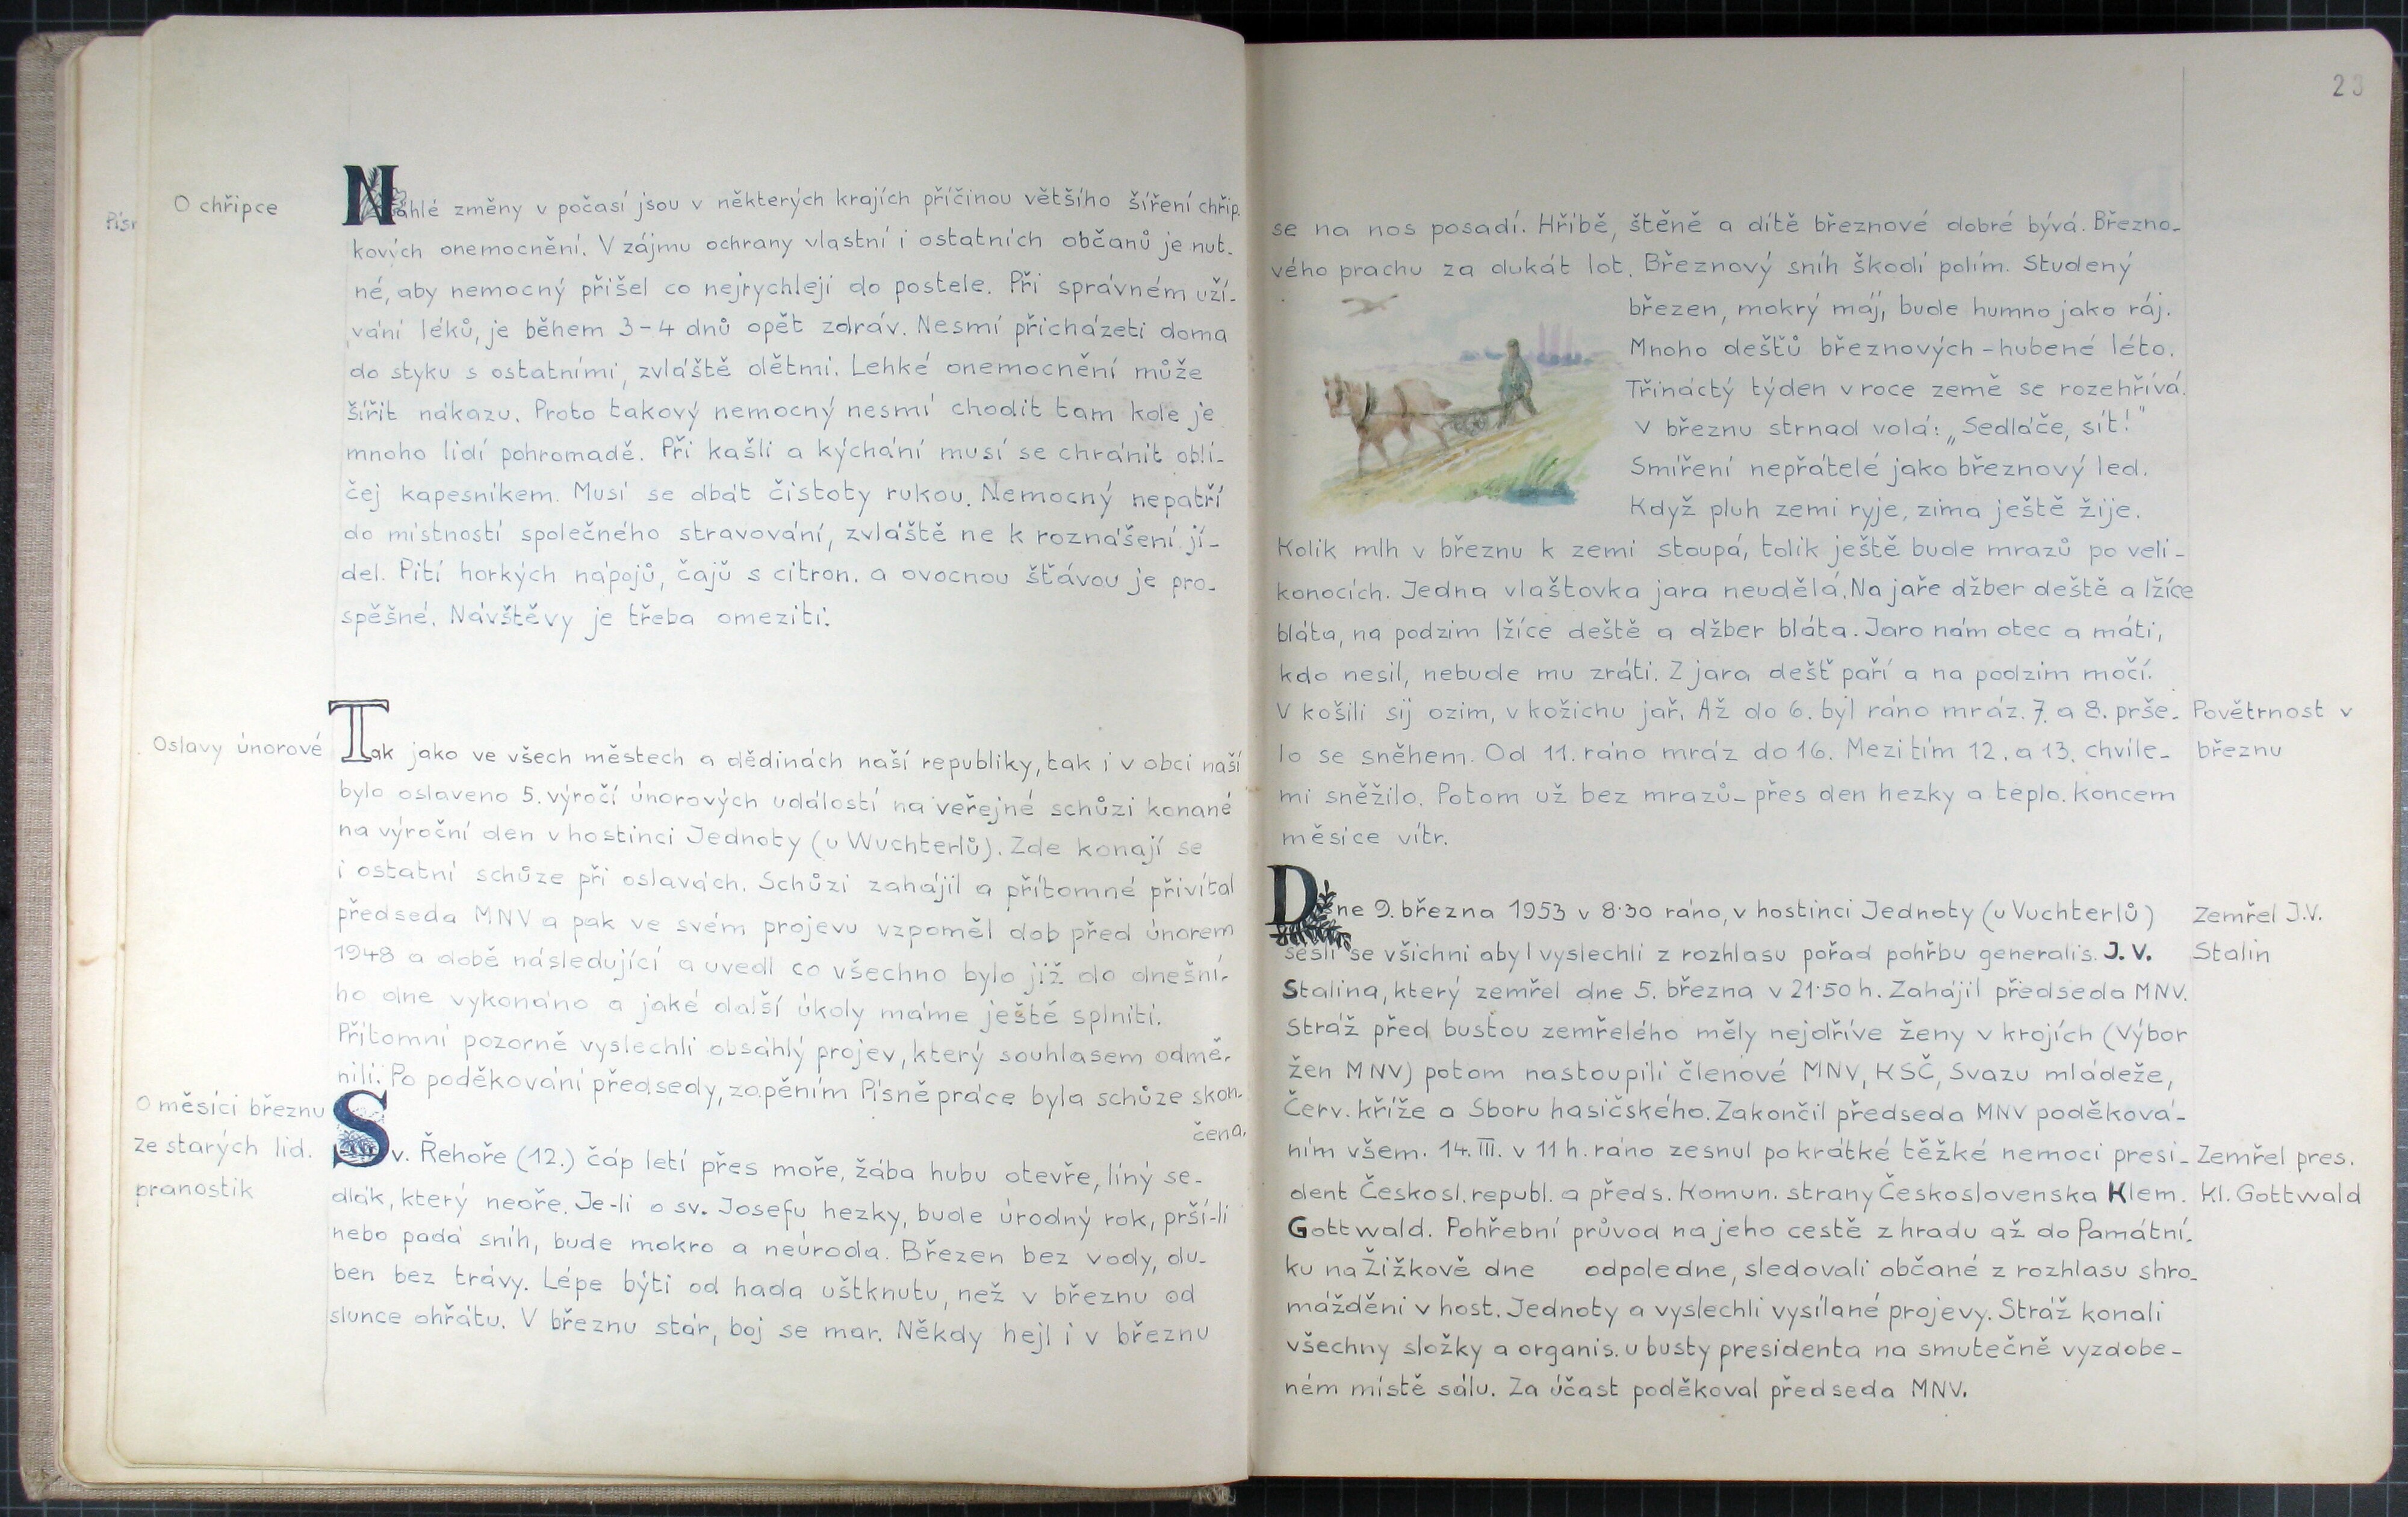 O chřipce
Náhlé změny v počasí jsou v některých krajích příčinou většího šíření chřip-
kových onemocnění. V zájmu ochrany vlastní i ostatních občanů je nut-
né, aby nemocný přišel co nejrychleji do postele. Při správném uží-
vání léků, je během 3-4 dnů opět zdráv. Nesmí přicházeti doma
do styku s ostatními, zvláště dětmi. Lehké onemocnění může
šířit nákazu. Proto takový nemocný nesmí chodit tam kde je
mnoho lidí pohromadě. Při kašli a kýchání musí se chránit obli-
čej kapesníkem. Musí se dbát čistoty rukou. Nemocný nepatří
do místností společného stravování, zvláště ne k roznášení jí-
del. Pití horkých nápojů, čajů s citron. a ovocnou šťávou je pro-
spěšné. Návštěvy je třeba omeziti.
Oslavy únorové
Tak jako ve všech městech a dědinách naší republiky, tak i v obci naší
bylo oslaveno 5. výročí únorových událostí na veřejné schůzi konané
na výroční den v hostinci Jednoty (u Wuchterlů). Zde konají se
i ostatní schůze při oslavách. Schůzi zahájil a přítomné přivítal
předseda MNV a pak ve svém projevu vzpoměl dob před únorem
1948 a době následující a uvedl co všechno bylo již do dnešní-
ho dne vykonáno a jaké další úkoly máme ještě splniti.
Přítomní pozorně vyslechli obsáhlý projev, který souhlasem odmě-
nili. Po poděkování předsedy, zapěním Písně práce byla schůze skon-
čena.
O měsíci březnu
ze starých lid.
pranostik
Sv. Řehoře (12.) čáp letí přes moře, žába hubu otevře, líný se-
dlák, který neoře. Je-li o sv. Josefu hezky, bude úrodný rok, prší-li
nebo padá sníh, bude mokro a neúroda. Březen bez vody, du-
ben bez trávy. Lépe býti od hada uštknutu, než v březnu od
slunce ohřátu. V březnu stár, boj se mar. Někdy hejl i v březnu
Písr
23
se na nos posadí. Hříbě, štěně a dítě březnové dobré bývá. Březno-
vého prachu za dukát lot. Březnový sníh škodí polím. Studený
březen, mokrý máj, bude humno jako ráj.
Mnoho dešťů březnových - hubené léto.
Třináctý týden v roce země se rozehřívá.
V březnu strnad volá: „Sedláče, sít!"
Smíření nepřátelé jako březnový led.
Když pluh zemi ryje, zima ještě žije.
Kolik mlh v březnu k zemi stoupá, tolik ještě bude mrazů po veli-
konocích. Jedna vlaštovka jara neudělá. Na jaře džber deště a lžíce
bláta, na podzim lžíce deště a džber bláta. Jaro nám otec a máti,
kdo nesil, nebude mu zráti. Z jara dešť paří a na podzim močí.
V košili sij ozim, v kožichu jař. Až do 6. byl ráno mráz. 7. a 8. prše-
lo se sněhem. Od 11. ráno mráz do 16. Mezitím 12. a 13. chvíle-
mi sněžilo. Potom už bez mrazů - přes den hezky a teplo. Koncem
měsíce vítr.
Povětrnost v
březnu
Dne 9. března 1953 v 8·30 ráno, v hostinci Jednoty (u Vuchterlů)
sešli se všichni aby vyslechli z rozhlasu pořad pohřbu generalis. J. V.
Stalina, který zemřel dne 5. března v 21·50 h. Zahájil předseda MNV.
Stráž před bustou zemřelého měly nejdříve ženy v krojích (Výbor
žen MNV) potom nastoupili členové MNV, KSČ, Svazu mládeže,
Červ. kříže a Sboru hasičského. Zakončil předseda MNV poděková-
ním všem. 14. III. v 11 h. ráno zesnul po krátké těžké nemoci presi-
dent Českosl. republ. a předs. Komun. strany Československa Klem.
Gottwald. Pohřební průvod na jeho cestě z hradu až do Památní-
ku na Žižkově dne odpoledne, sledovali občané z rozhlasu shro-
mážděni v host. Jednoty a vyslechli vysílané projevy. Stráž konali
všechny složky a organis. u busty presidenta na smutečně vyzdobe-
ném místě sálu. Za účast poděkoval předseda MNV.
Zemřel J.V.
Stalin
Zemřel pres.
Kl. Gottwald